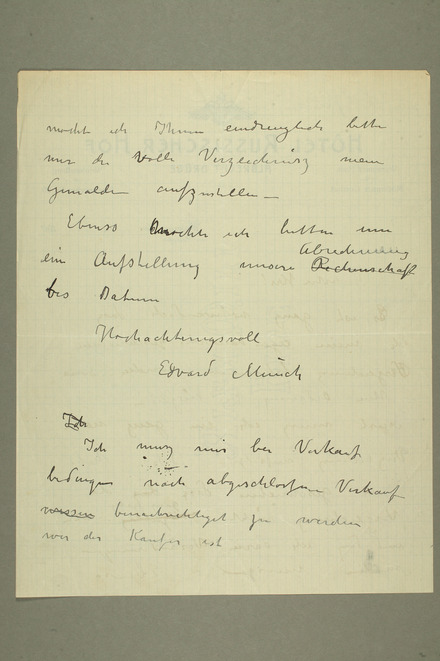 mocht ich Ihnen eindrenglich bitte
mir die volle Verzeichnisz meine
Gemälden aufzustellen —
Ebenso mochte ich bitten um
ein Aufstellung unsere Rechenschaft
Abrechnung
bis Datum
Hochachtungsvoll
Edvard Munch
Ich
Ich musz mir bei Verkauf
bedingen nach abgeschlossene Verkauf
wissen benachrichtigt zu werden
wer der Kaufer ist
HOTEL RUSSISCHER HOF